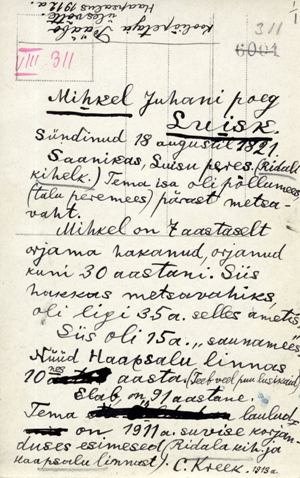 Kooliõpetaja
ülesvõtte
Haapsalus 1912 a.
311
6001
VIII 311
Mihkel Juhani poeg
Luisk.
Sündinud 18 augustil 1821
Saanikas, Luisu peres (Ridali
kihelk.) Tema isa oli põllumees
(talu peremees) pärast metsa-
vaht.
Mihkel on 7 aastaselt
orjama hakanud, orjanud
kuni 30 aastani. Siis
hakkas metsavahiks,
oli ligi 35 a. selles ametis
Siis oli 15 a. „saunamees"
Nüüd Haapsalu linnas
10 nes aasta. (Teeb veel puu lusikaid)
Elab, on 91 aastane.
Tema laulud
on 1911 a. suvise korjan-
duses esimesed (Ridala kih. ja
Haapsalu linnast). C. Kreek. 1913 a.